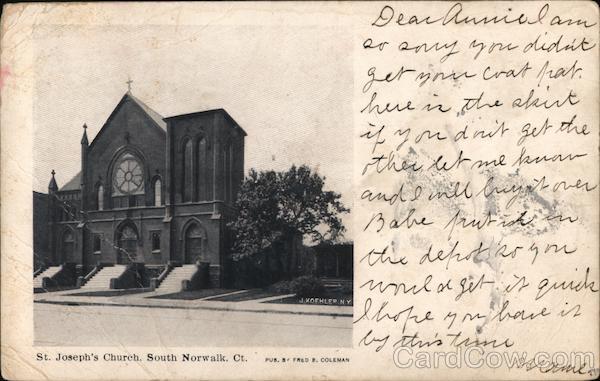 Dear Annie I am
so sorry you did'nt
get your coat pat.
here is the skirt
if you don't get the
other let me know
and I will buy it over
Babe put it in
the depot so you
would get it quick
I hope you have it
by this time
J. KOEHLER, N.Y.
St. Joseph's Church, South Norwalk, Ct. PUB. BY FRED B. COLEMAN
CardCow.com